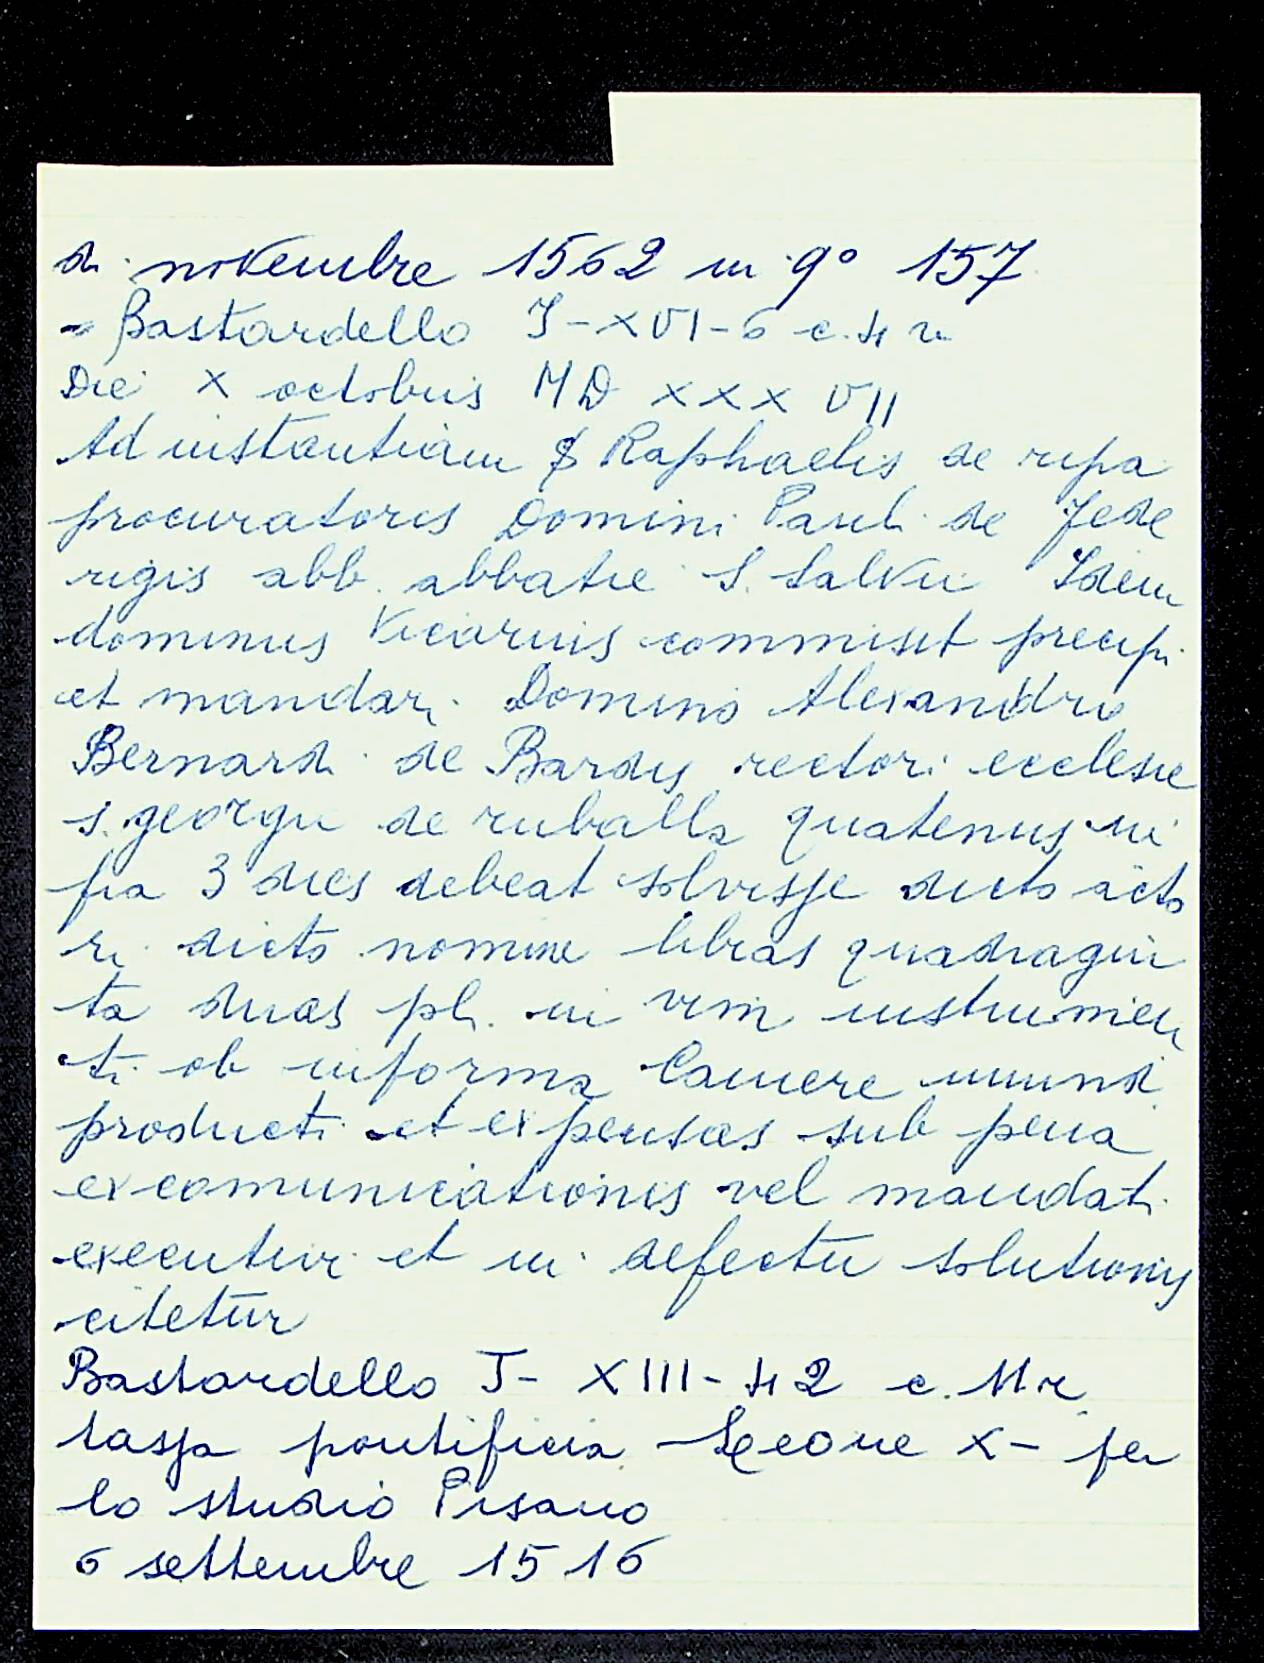 di novembre 1562 in 9° 157
- Bastardello I-XVI-6 c. 42
Die X octobris MD XXX VII
Ad instantiam S Raphaelis de ripa
procuratoris Domini Pauli de Fede
rigis abb. abbatie S. Salvii Idem
dominus Vicarius commisit precipi
et mandari Domino Alexandro
Bernardi de Bardis rectori ecclesie
S. georgii de ruballa quatenus in
fra 3 dies debeat solvisse dicto acto
ri dicto nomine libras quadragin
ta duas pli. in vim instrumen
ti ob in forma Camere
producti et expensas sub pena
excomunicationis vel mandati
executivi et in defectu solutionis
citetur
Bastardello I- XIII-42 c. 11 r.
tassa pontificia Leone X- per
lo studio Pisano
6 settembre 1516